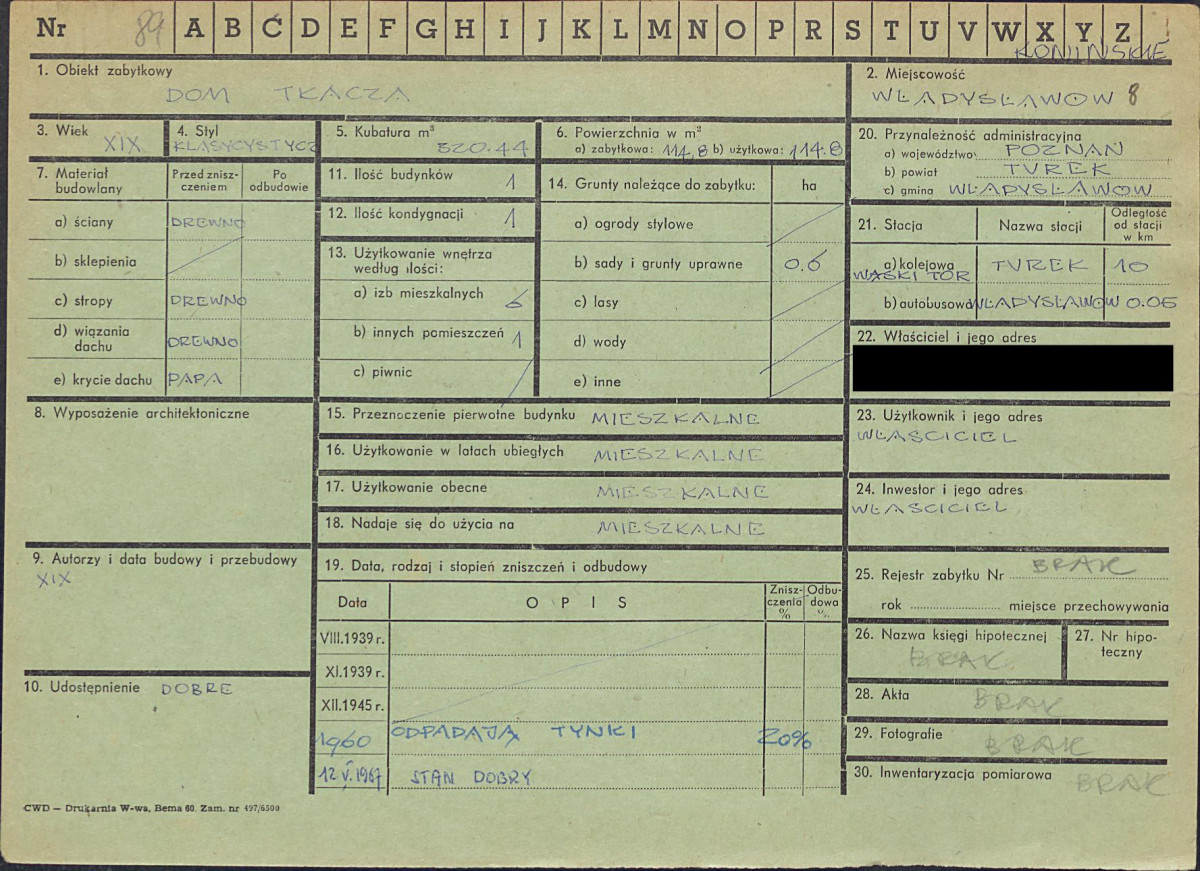 Nr 89 A B C D E F G H I J K L M N O P R S T U V W X Y Z
KONIŃSKIE
1. Obiekt zabytkowy
DOM TKACZA
2. Miejscowość
WŁADYSŁAWOW 8
3. Wiek
XIX
4. Styl
KLASYCYSTYCZ
5. Kubatura m³
320.44
6. Powierzchnia w m²
a) zabytkowa: 114,8 b) użytkowa: 114.8
20. Przynależność administracyjna
a) województwo POZNAŃ
b) powiat TUREK
c) gmina WŁADYSŁAWÓW
7. Materiał budowlany
Przed znisz-
czeniem
Po
odbudowie
a) ściany DREWNO
b) sklepienia
c) stropy DREWNO
d) wiązania
dachu DREWNO
e) krycie dachu PAPA
11. Ilość budynków 1
12. Ilość kondygnacji 1
13. Użytkowanie wnętrza
według ilości:
a) izb mieszkalnych 6
b) innych pomieszczeń 1
c) piwnic
14. Grunty należące do zabytku: ha
a) ogrody stylowe
b) sady i grunty uprawne 0.6
c) lasy
d) wody
e) inne
21. Stacja Nazwa stacji
Odległość
od stacji
w km
a) kolejowa TUREK 10
WĄSKI TOR
b) autobusowa WŁADYSŁAWOW 0.05
22. Właściciel i jego adres
8. Wyposażenie architektoniczne
15. Przeznaczenie pierwotne budynku MIESZKALNE
16. Użytkowanie w latach ubiegłych MIESZKALNE
17. Użytkowanie obecne MIESZKALNE
18. Nadaje się do użycia na MIESZKALNE
23. Użytkownik i jego adres
WŁAŚCICIEL
24. Inwestor i jego adres
WŁAŚCICIEL
9. Autorzy i data budowy i przebudowy
XIX
10. Udostępnienie DOBRE
19. Data, rodzaj i stopień zniszczeń i odbudowy
Data OPIS
Znisz-
czenia
%
Odbu-
dowa
%
VIII.1939 r.
XI.1939 r.
XII.1945 r.
1960 ODPADAJĄ TYNKI 20%
12 V.1967 STAN DOBRY
25. Rejestr zabytku Nr BRAK
rok miejsce przechowywania
26. Nazwa księgi hipotecznej
BRAK
27. Nr hipo-
teczny
28. Akta BRAK
29. Fotografie BRAK
30. Inwentaryzacja pomiarowa BRAK
CWD — Drukarnia W-wa, Bema 60. Zam. nr 497/6500